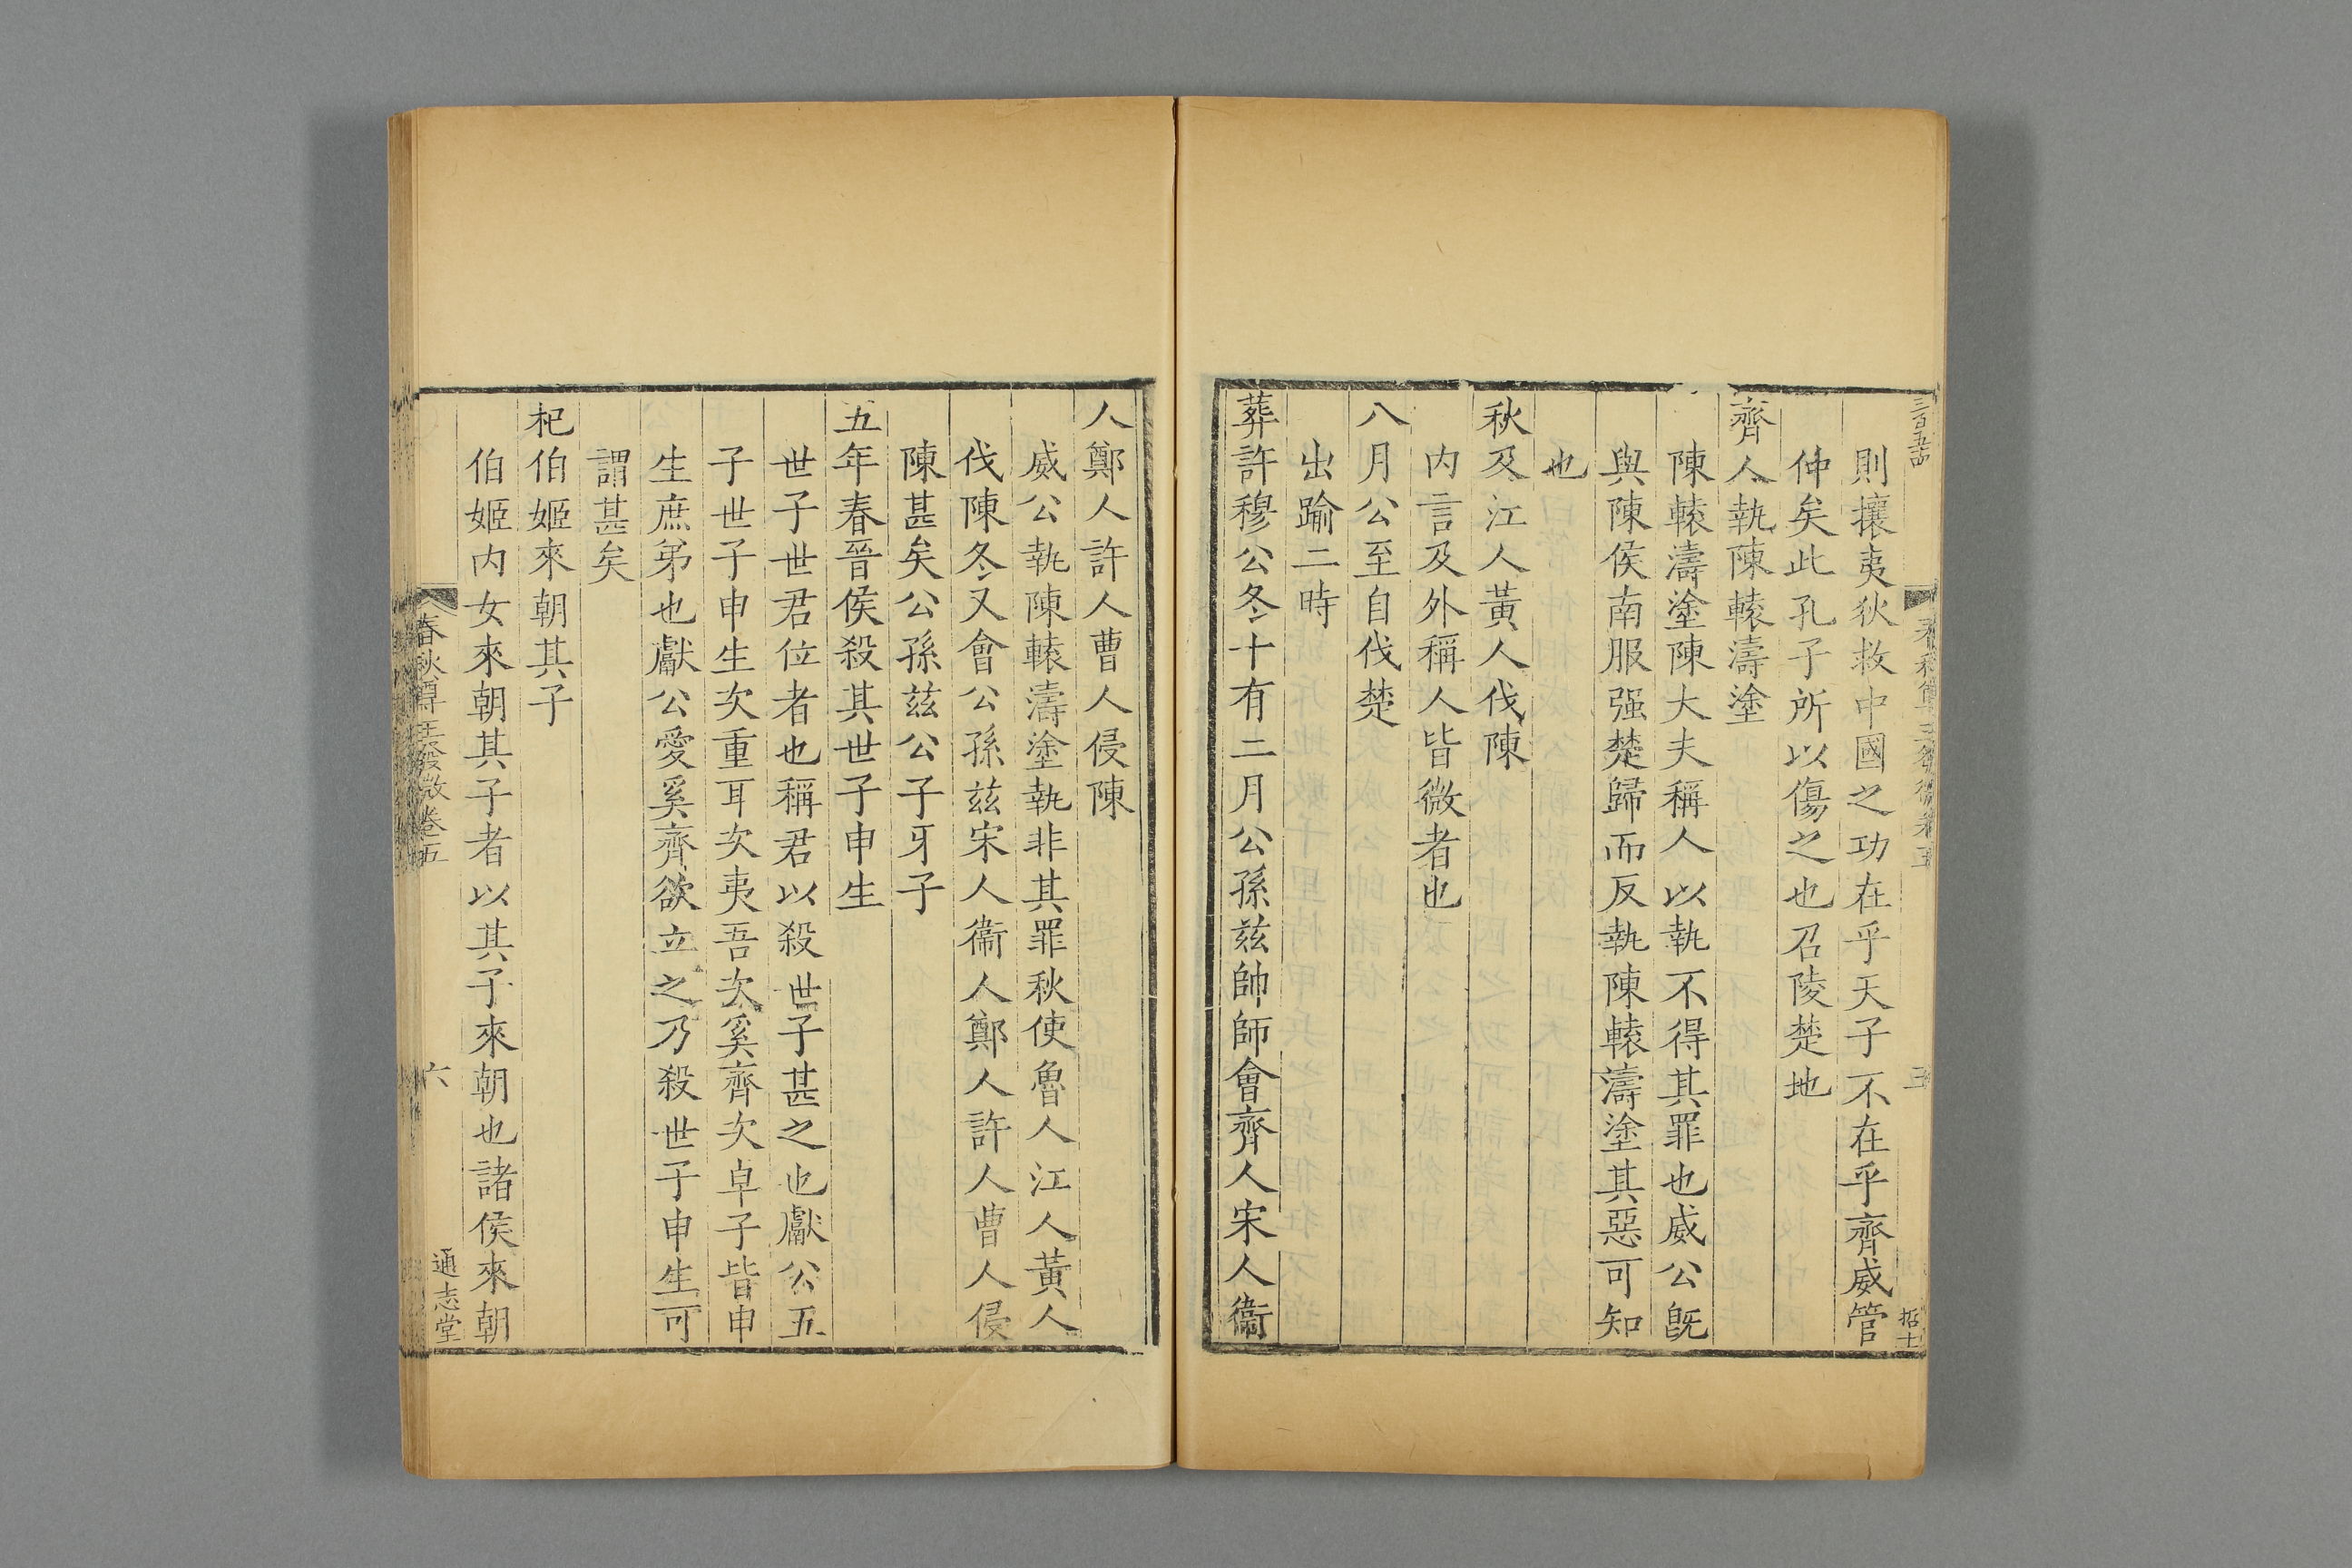 則攘夷狄救中國之功在乎天子不在乎齊威管
仲矣此孔子所以傷之也召陵楚地
齊人執陳轅濤塗
陳轅濤塗陳大夫稱人以執不得其罪也威公旣
與陳侯南服强楚歸而反執陳轅濤塗其惡可知
也
秋及江人黃人伐陳
内言及外稱人皆微者也
八月公至自伐楚
出踰二時
葬許穆公冬十有二月公孫兹帥師會齊人宋人衞
人鄭人許人曹人侵陳
威公執陳轅濤塗執非其罪秋使魯人江人黃人
伐陳冬又會公孫兹宋人衞人鄭人許人曹人侵
陳甚矣公孫兹公子牙子
五年春晉侯殺其世子申生
世子世君位者也稱君以殺世子甚之也獻公五
子世子申生次重耳次夷吾次奚齊次卓子皆申
生庶弟也獻公愛奚齊欲立之乃殺世子申生可
謂甚矣
杞伯姬來朝其子
伯姬内女來朝其子者以其子來朝也諸侯來朝
春秋尊王發微卷五
六
通志堂